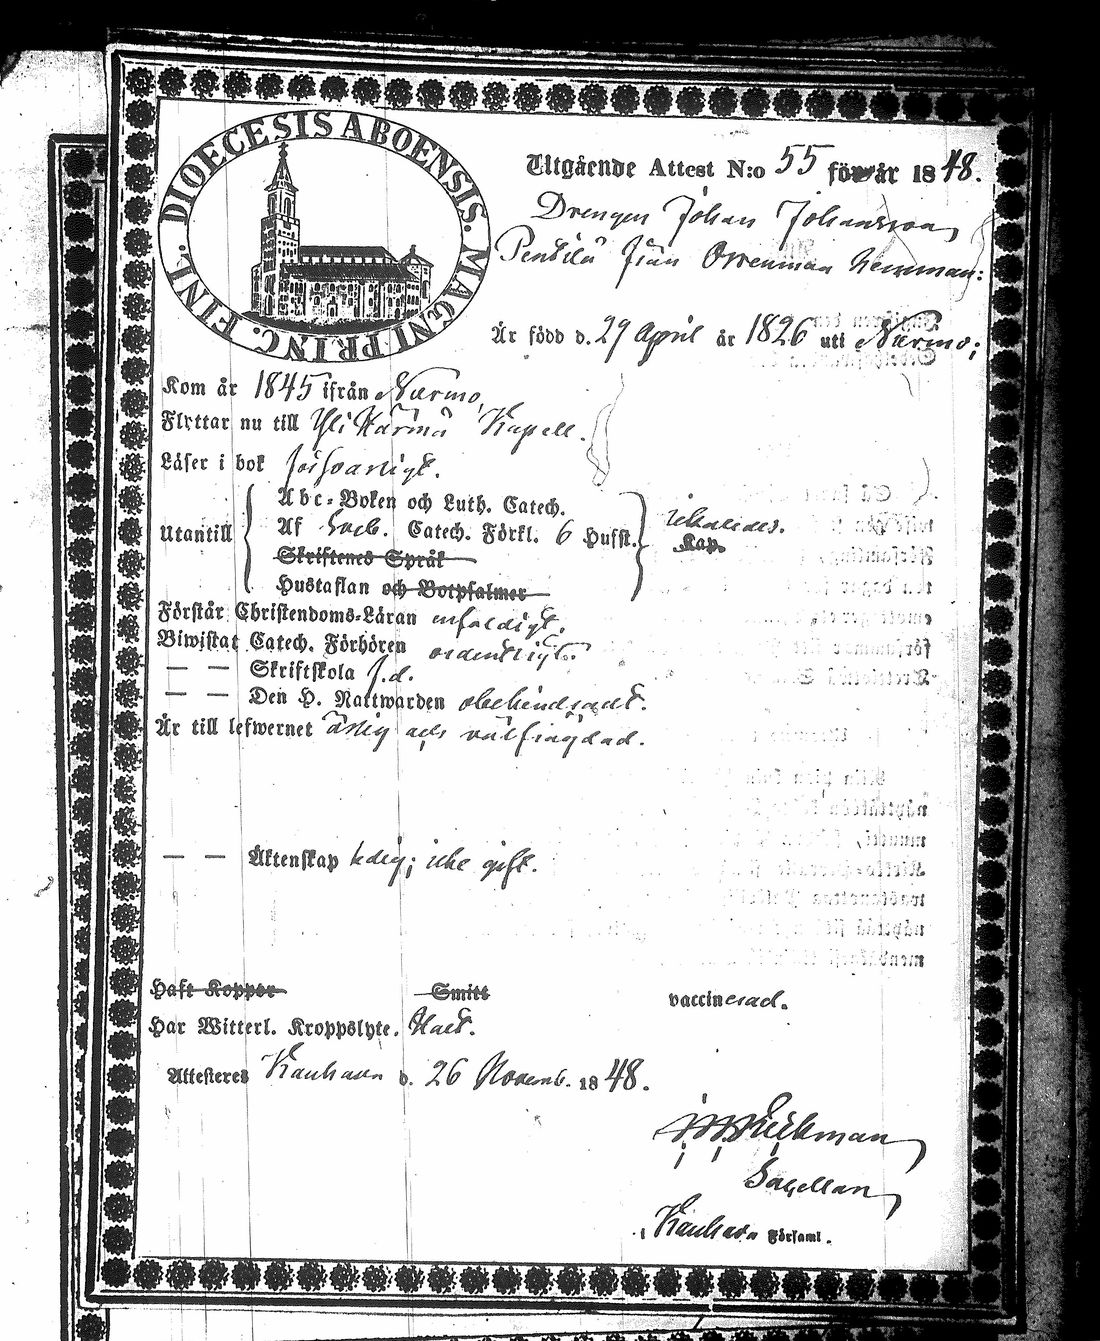 DIOECESIS ABOENSIS. MAGNI PRINC. FINL.
Utgående Attest N:o 55 för år 1848.
Drengen Johan Johansson
Penttilä från
Är född d. 29 April år 1826 uti Nurmo;
Kom år 1845 ifrån Nurmo,
Flyttar nu till Yli Härmä Kapell.
Läser i bok försvarligt.
Utantill
Abc-Boken och Luth. Catech.
Af Sveb. Catech. Förkl. 6 Hufst.
Skriftenes Språk
Kap.
Hustaflan och Botpsalmer
Förstår Christendoms-Läran enfaldigt.
Biwistat Catech. Förhören ordentligt.
— — Skriftskola J.d.
— — Den H. Nattwarden obehindradt.
Är till lefwernet ärlig och välfrägdad.
— — Äktenskap ledig; icke gift.
Haft Koppor Smitt vaccinerad.
Har Witterl. Kroppslyte.
Attesteres Kauhava d. 26 Novemb. 1848.
Kauhava Församl.